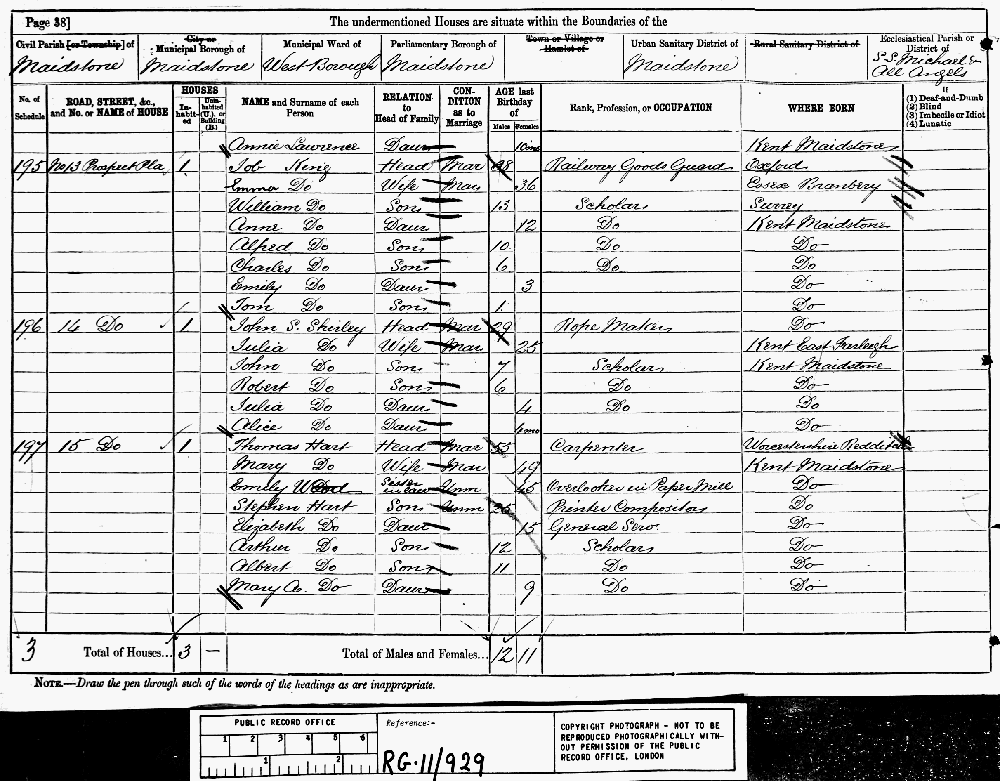 Page 38]
The undermentioned Houses are situate within the Boundaries of the
Civil Parish [or Township] of
Maidstone
City or Municipal Borough of
Maidstone
Municipal Ward of
West Borough
Parliamentary Borough of
Maidstone
Town or Village or Hamlet of
Urban Sanitary District of
Maidstone
Rural Sanitary District of
Ecclesiastical Parish or District of
S.S. Michael & All Angels
No. of Schedule
ROAD, STREET, &c., and No. or NAME of HOUSE
HOUSES
In-habit-ed
Unin-habited (U.), or Building (B.)
NAME and Surname of each Person
RELATION to Head of Family
CON-DITION as to Marriage
AGE last Birthday of
Males
Females
Rank, Profession, or OCCUPATION
WHERE BORN
If
(1) Deaf-and-Dumb
(2) Blind
(3) Imbecile or Idiot
(4) Lunatic
Annie Lawrence Daur 10mos Kent Maidstone
195 No 13 Prospect Pla 1 Job King Head Mar 38 Railway Goods Guard Oxford
Emma Do Wife Mar 36 Essex
William Do Son 13 Scholar Surrey
Anne Do Daur 12 Do Kent Maidstone
Alfred Do Son 10 Do Do
Charles Do Son 6 Do Do
Emily Do Daur 3 Do
Tom Do Son 1 Do
196 14 Do 1 John S. Shirley Head Mar 29 Rope Maker Do
Julia Do Wife Mar 25 Kent East Farleigh
John Do Son 7 Scholar Kent Maidstone
Robert Do Son 6 Do Do
Julia Do Daur 4 Do Do
Alice Do Daur mo Do
197 15 Do 1 Thomas Hart Head Mar 53 Carpenter Worcestershire Redditch
Mary Do Wife Mar 49 Kent Maidstone
Emily Wood Sister in law Unm 45 Overlooker in Paper Mill Do
Stephen Hart Son Unm Printer Compositor Do
Elizabeth Do Daur 15 General Serv Do
Arthur Do Son 12 Scholar Do
Albert Do Son 11 Do Do
Mary A. Do Daur 9 Do Do
3 Total of Houses... 3 — Total of Males and Females... 12 11
NOTE.—Draw the pen through such of the words of the headings as are inappropriate.
PUBLIC RECORD OFFICE
1 2 3 4 5 6
1 2
Reference:-
RG·11/929
COPYRIGHT PHOTOGRAPH - NOT TO BE
REPRODUCED PHOTOGRAPHICALLY WITH-
OUT PERMISSION OF THE PUBLIC
RECORD OFFICE, LONDON